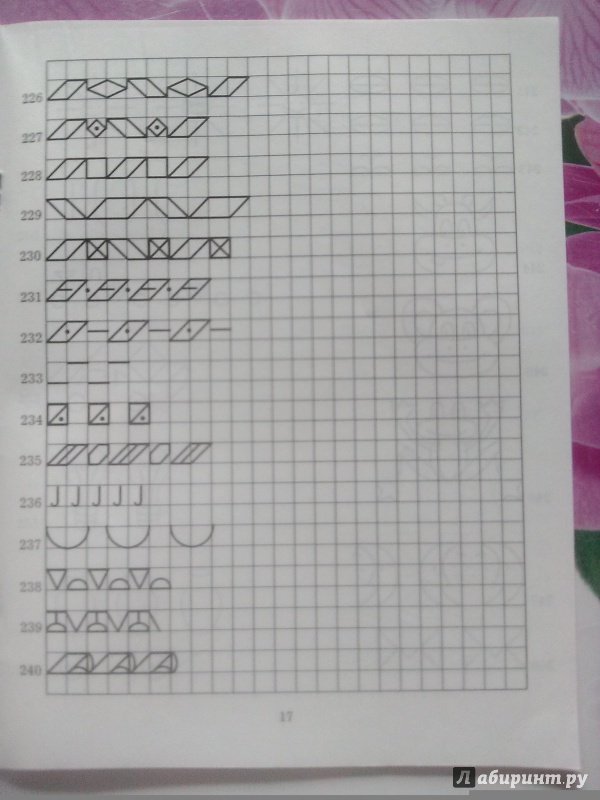 226
227
228
229
230
231
232
233
234
235
236
237
238
239
240
17
Лабиринт.ру